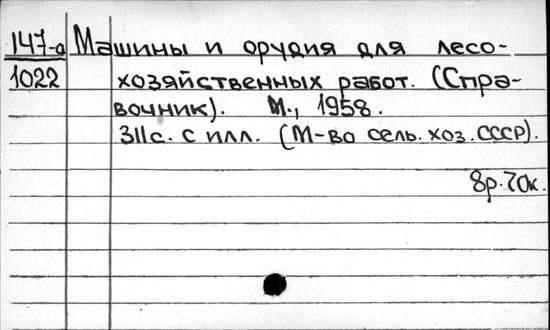 147-а Машины и орудия для лесо-
1022 хозяйственных работ. (Спра-
вочник). М., 1958.
311с. с илл. (М-во сель. хоз. СССР).
8р. 70к.